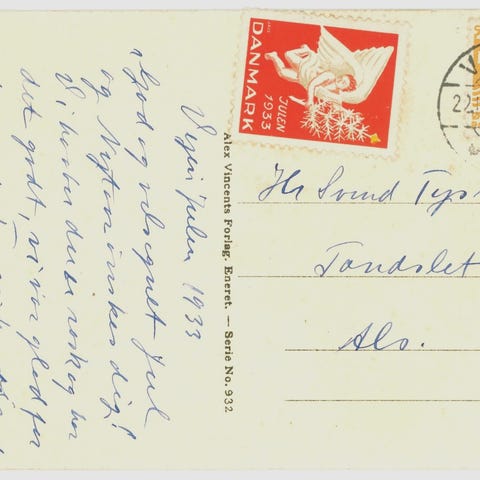 Vejen Julen 1933
God og velsignet Jul
og Nytår ønskes dig!
Vi haaber du er rask og har
det godt, vi var glad for
Alex Vincents Forlag. Eneret. — Serie No. 932
DANMARK
JULEN
1933
V
22
Hr Svend Tys
Tandslet
Als.